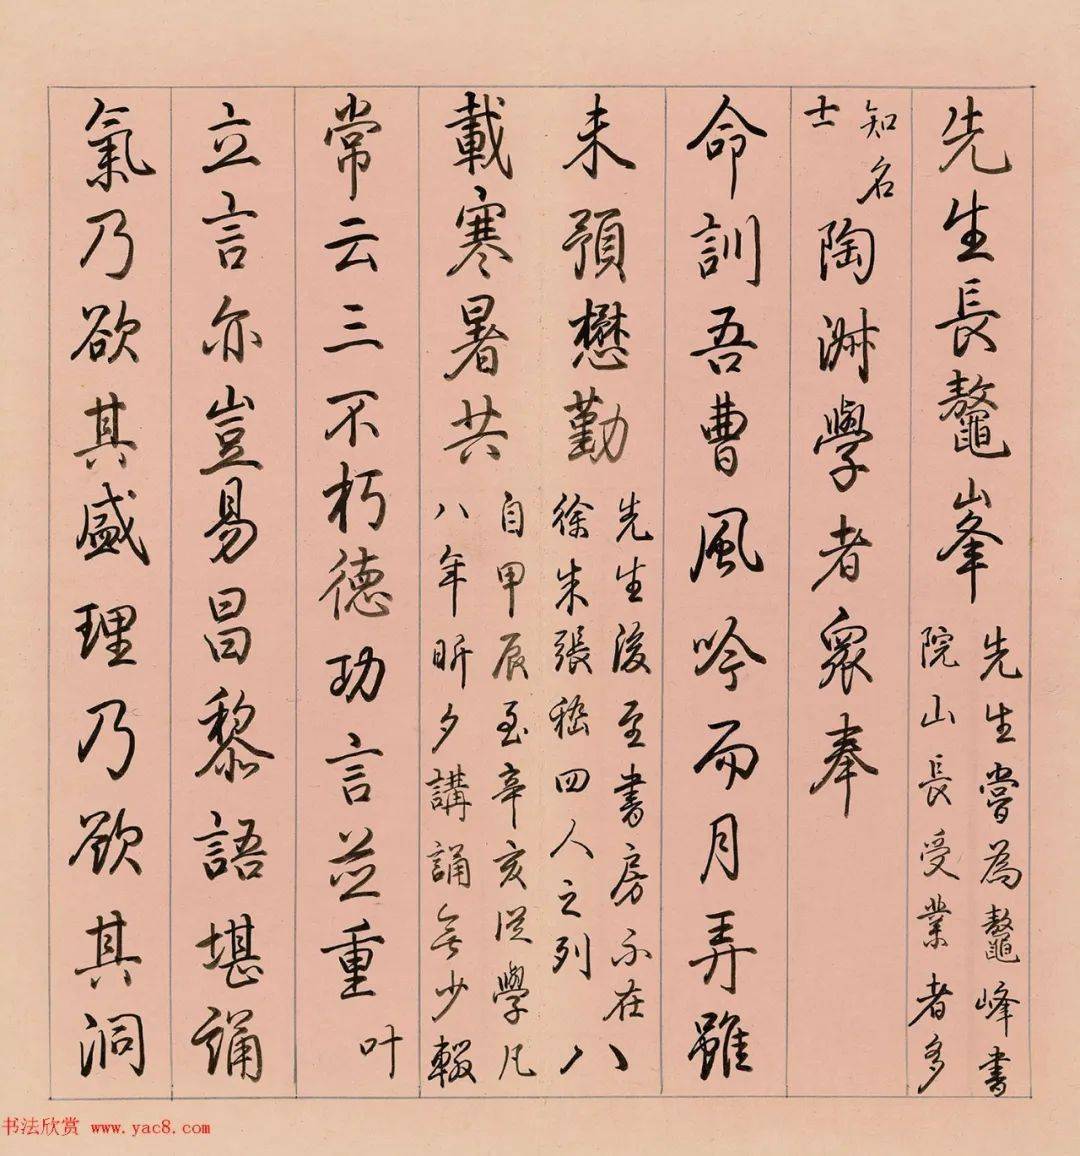 先生長鼇峯先生嘗為鼇峰書院山長受業者多
知名士陶淑學者衆奉
命訓吾曹風吟而月弄雖
未預懋勤先生後至書房不在徐朱張嵇四人之列八
載寒暑共自甲辰至辛亥從學凡八年昕夕講誦無少輟
常云三不朽德功言並重叶
立言亦豈易昌黎語堪誦
氣乃欲其盛理乃欲其洞
书法欣赏 www.yac8.com